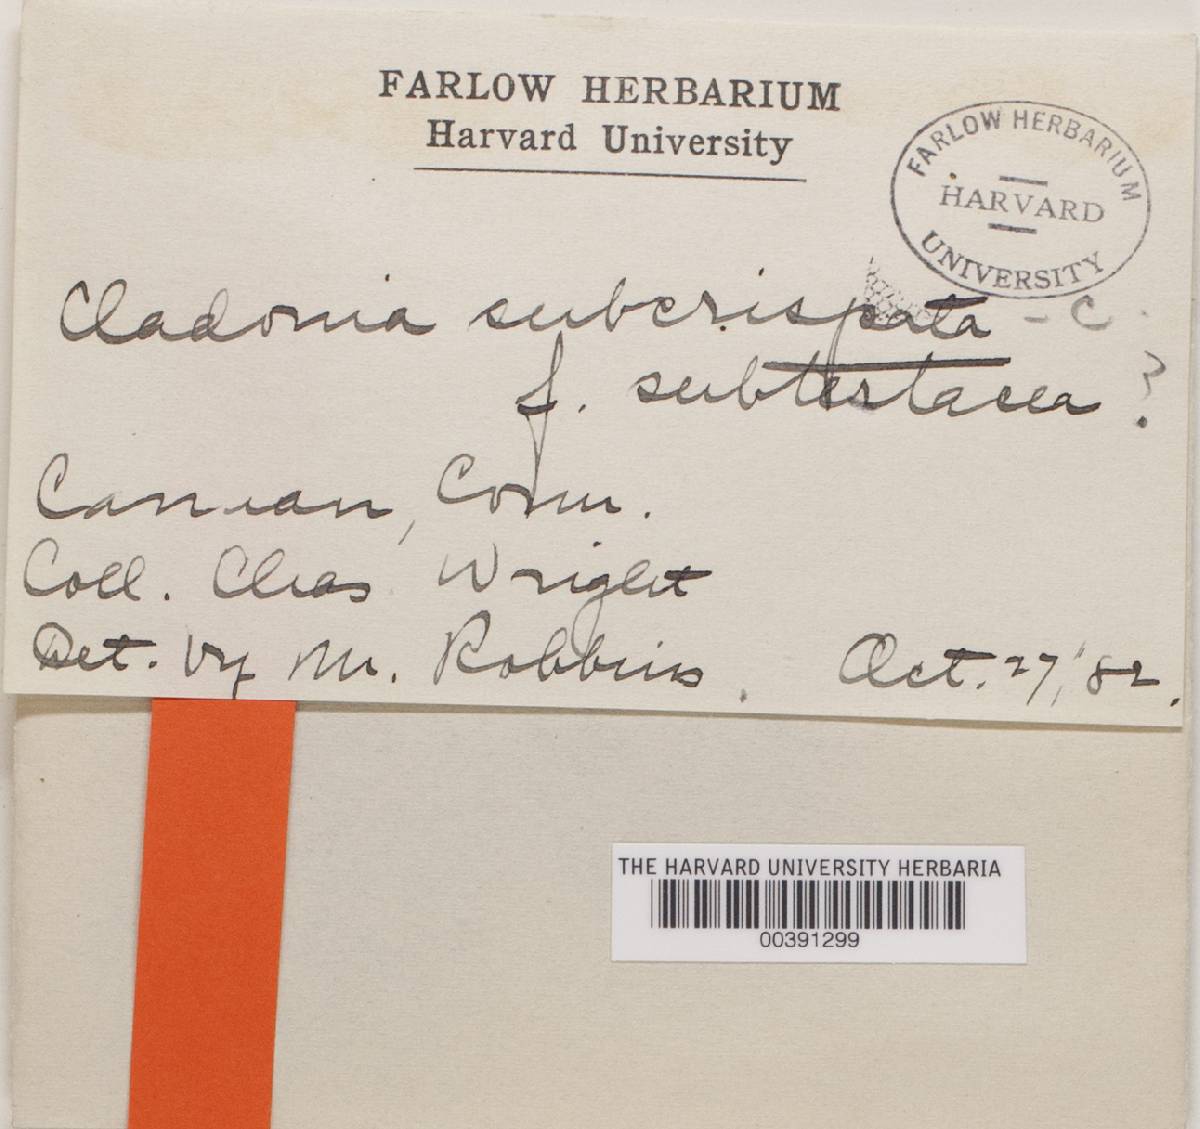 FARLOW HERBARIUM
Harvard University
FARLOW HERBARIUM
HARVARD
UNIVERSITY
Cladonia subcrispata - C.
f. subtestacea ?
Canaan, Conn.
Coll. Chas Wright
Det. by M. Robbins. Oct. 27, '82.
THE HARVARD UNIVERSITY HERBARIA
00391299